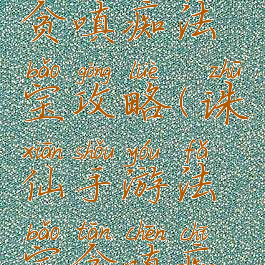 贪嗔痴法
bǎo gōng lüè zhū
宝攻略(诛
xiān shǒu yóu fǎ
仙手游法
bǎo tān chēn chī
宝贪嗔痴